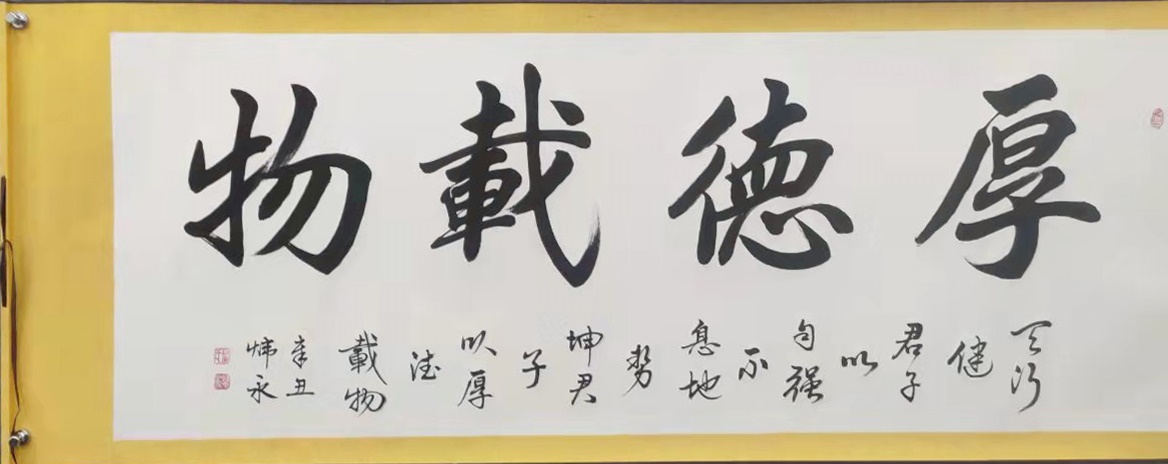 厚德載物
天行
健
君子
以
自强
不
息地
势
坤君
子
以厚
德
載物
辛丑
永